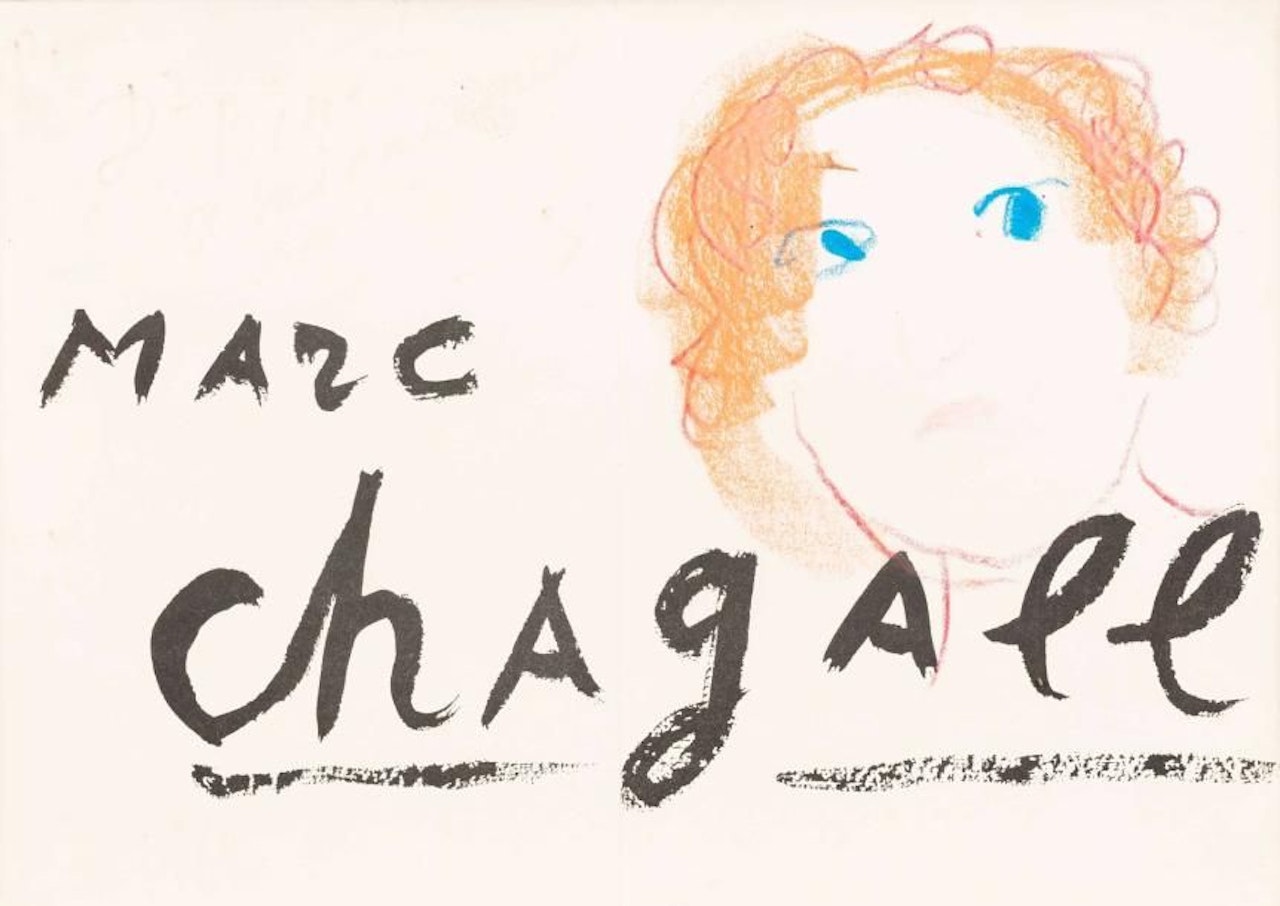 MArc
chAgAll